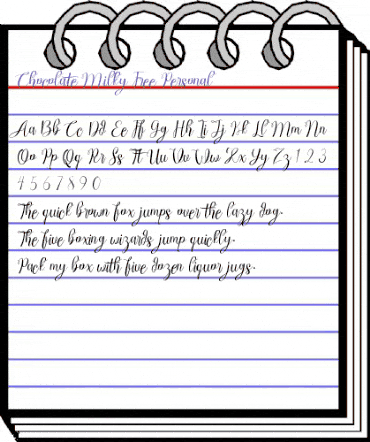 Chocolate Milky Free Personal
Aa Bb Cc Dd Ee Ff Gg Hh Ii Jj Kk Ll Mm Nn
Oo Pp Qq Rr Ss Tt Uu Vv Ww Xx Yy Zz 1 2 3
4 5 6 7 8 9 0
The quick brown fox jumps over the lazy dog.
The five boxing wizards jump quickly.
Pack my box with five dozen liquor jugs.